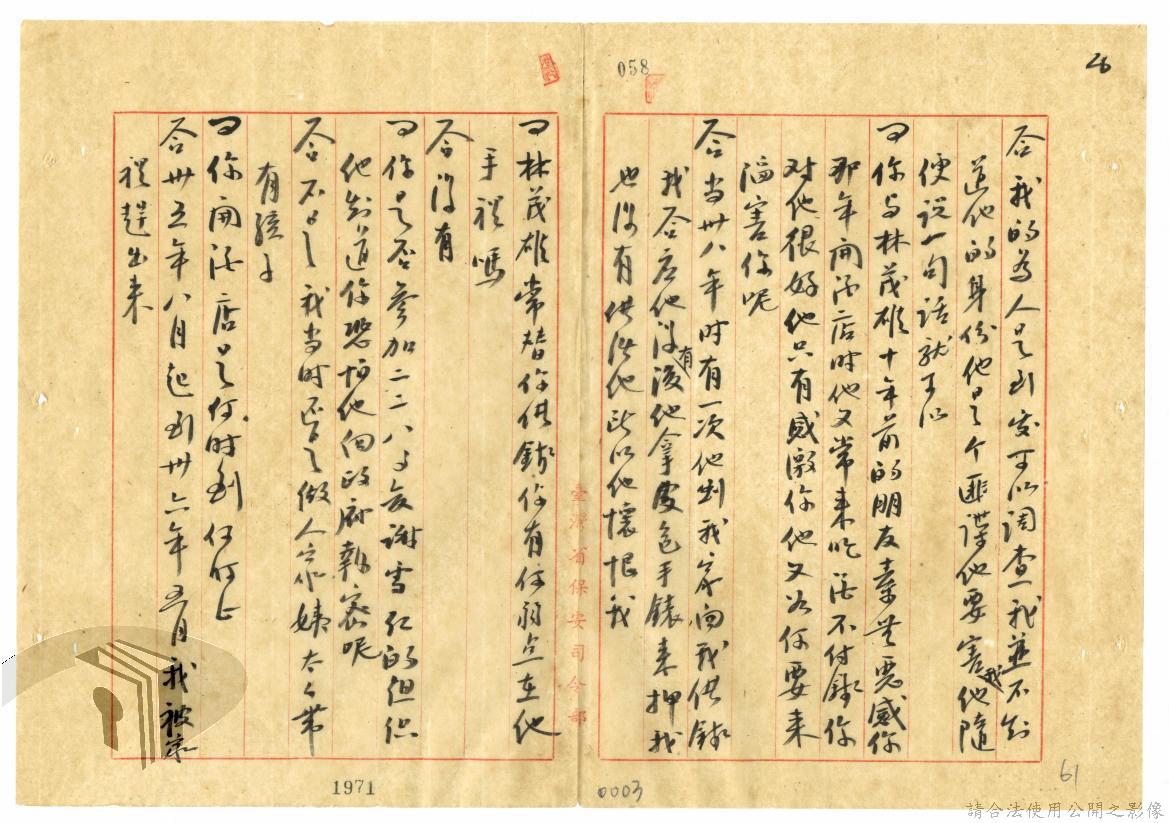 26
058
答 我的為人是到處可以調查我並不知
道他的身份他是個匪諜他要害我他隨
便說一句話就可以
問 你与林茂雄十年前的朋友素無惡感你
那年開茶店時他又常來吃茶不付錢你
对他很好他只有感激你他又为何要來
陷害你呢
答 当卅八年时有一次他到我家向我借錢
我答应他沒有後他拿皮包手錶來押我
也沒有借給他所以他懷恨我
問 林茂雄常替你借錢你有何弱点在他
手裡嗎
答 沒有
問 你是否參加二二八与謝雪红的但你
他知道你恐怕他向政府執密呢
答 不是我当时还是做人家小姨太太带
有孩子
問 你開茶店是何时到何时止
答 卅五年八月起到卅六年五月我被家
裡趕出来
臺灣省保安司令部
1971
0003
61
請合法使用公開之影像